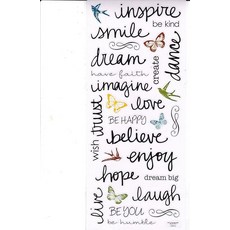 inspire
be kind
smile
dream
dance
create
have faith
imagine
love
trust
BE HAPPY
wish
believe
enjoy
hope
dream big
live
laugh
BE YOU
be humble